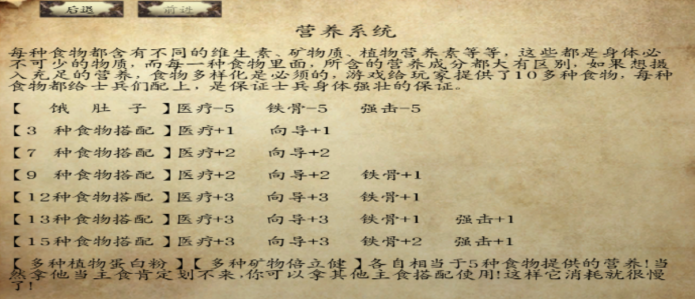 后退 前进
营养系统
每种食物都含有不同的维生素、矿物质、植物营养素等等，这些都是身体必
不可少的物质，而每一种食物里面，所含的营养成分都大有区别，如果想摄
入充足的营养，食物多样化是必须的，游戏给玩家提供了10多种食物，每种
食物都给士兵们配上，是保证士兵身体强壮的保证。
【 饿 肚 子 】医疗-5 铁骨-5 强击-5
【 3 种食物搭配 】医疗+1 向导+1
【 7 种食物搭配 】医疗+2 向导+2
【 9 种食物搭配 】医疗+2 向导+2 铁骨+1
【 12种食物搭配 】医疗+3 向导+3 铁骨+1
【 13种食物搭配 】医疗+3 向导+3 铁骨+1 强击+1
【 15种食物搭配 】医疗+3 向导+3 铁骨+2 强击+1
【 多种植物蛋白粉 】【 多种矿物倍立健 】各自相当于5种食物提供的营养!当
然拿他当主食肯定划不来,你可以拿其他主食搭配使用!这样它消耗就很慢
了!